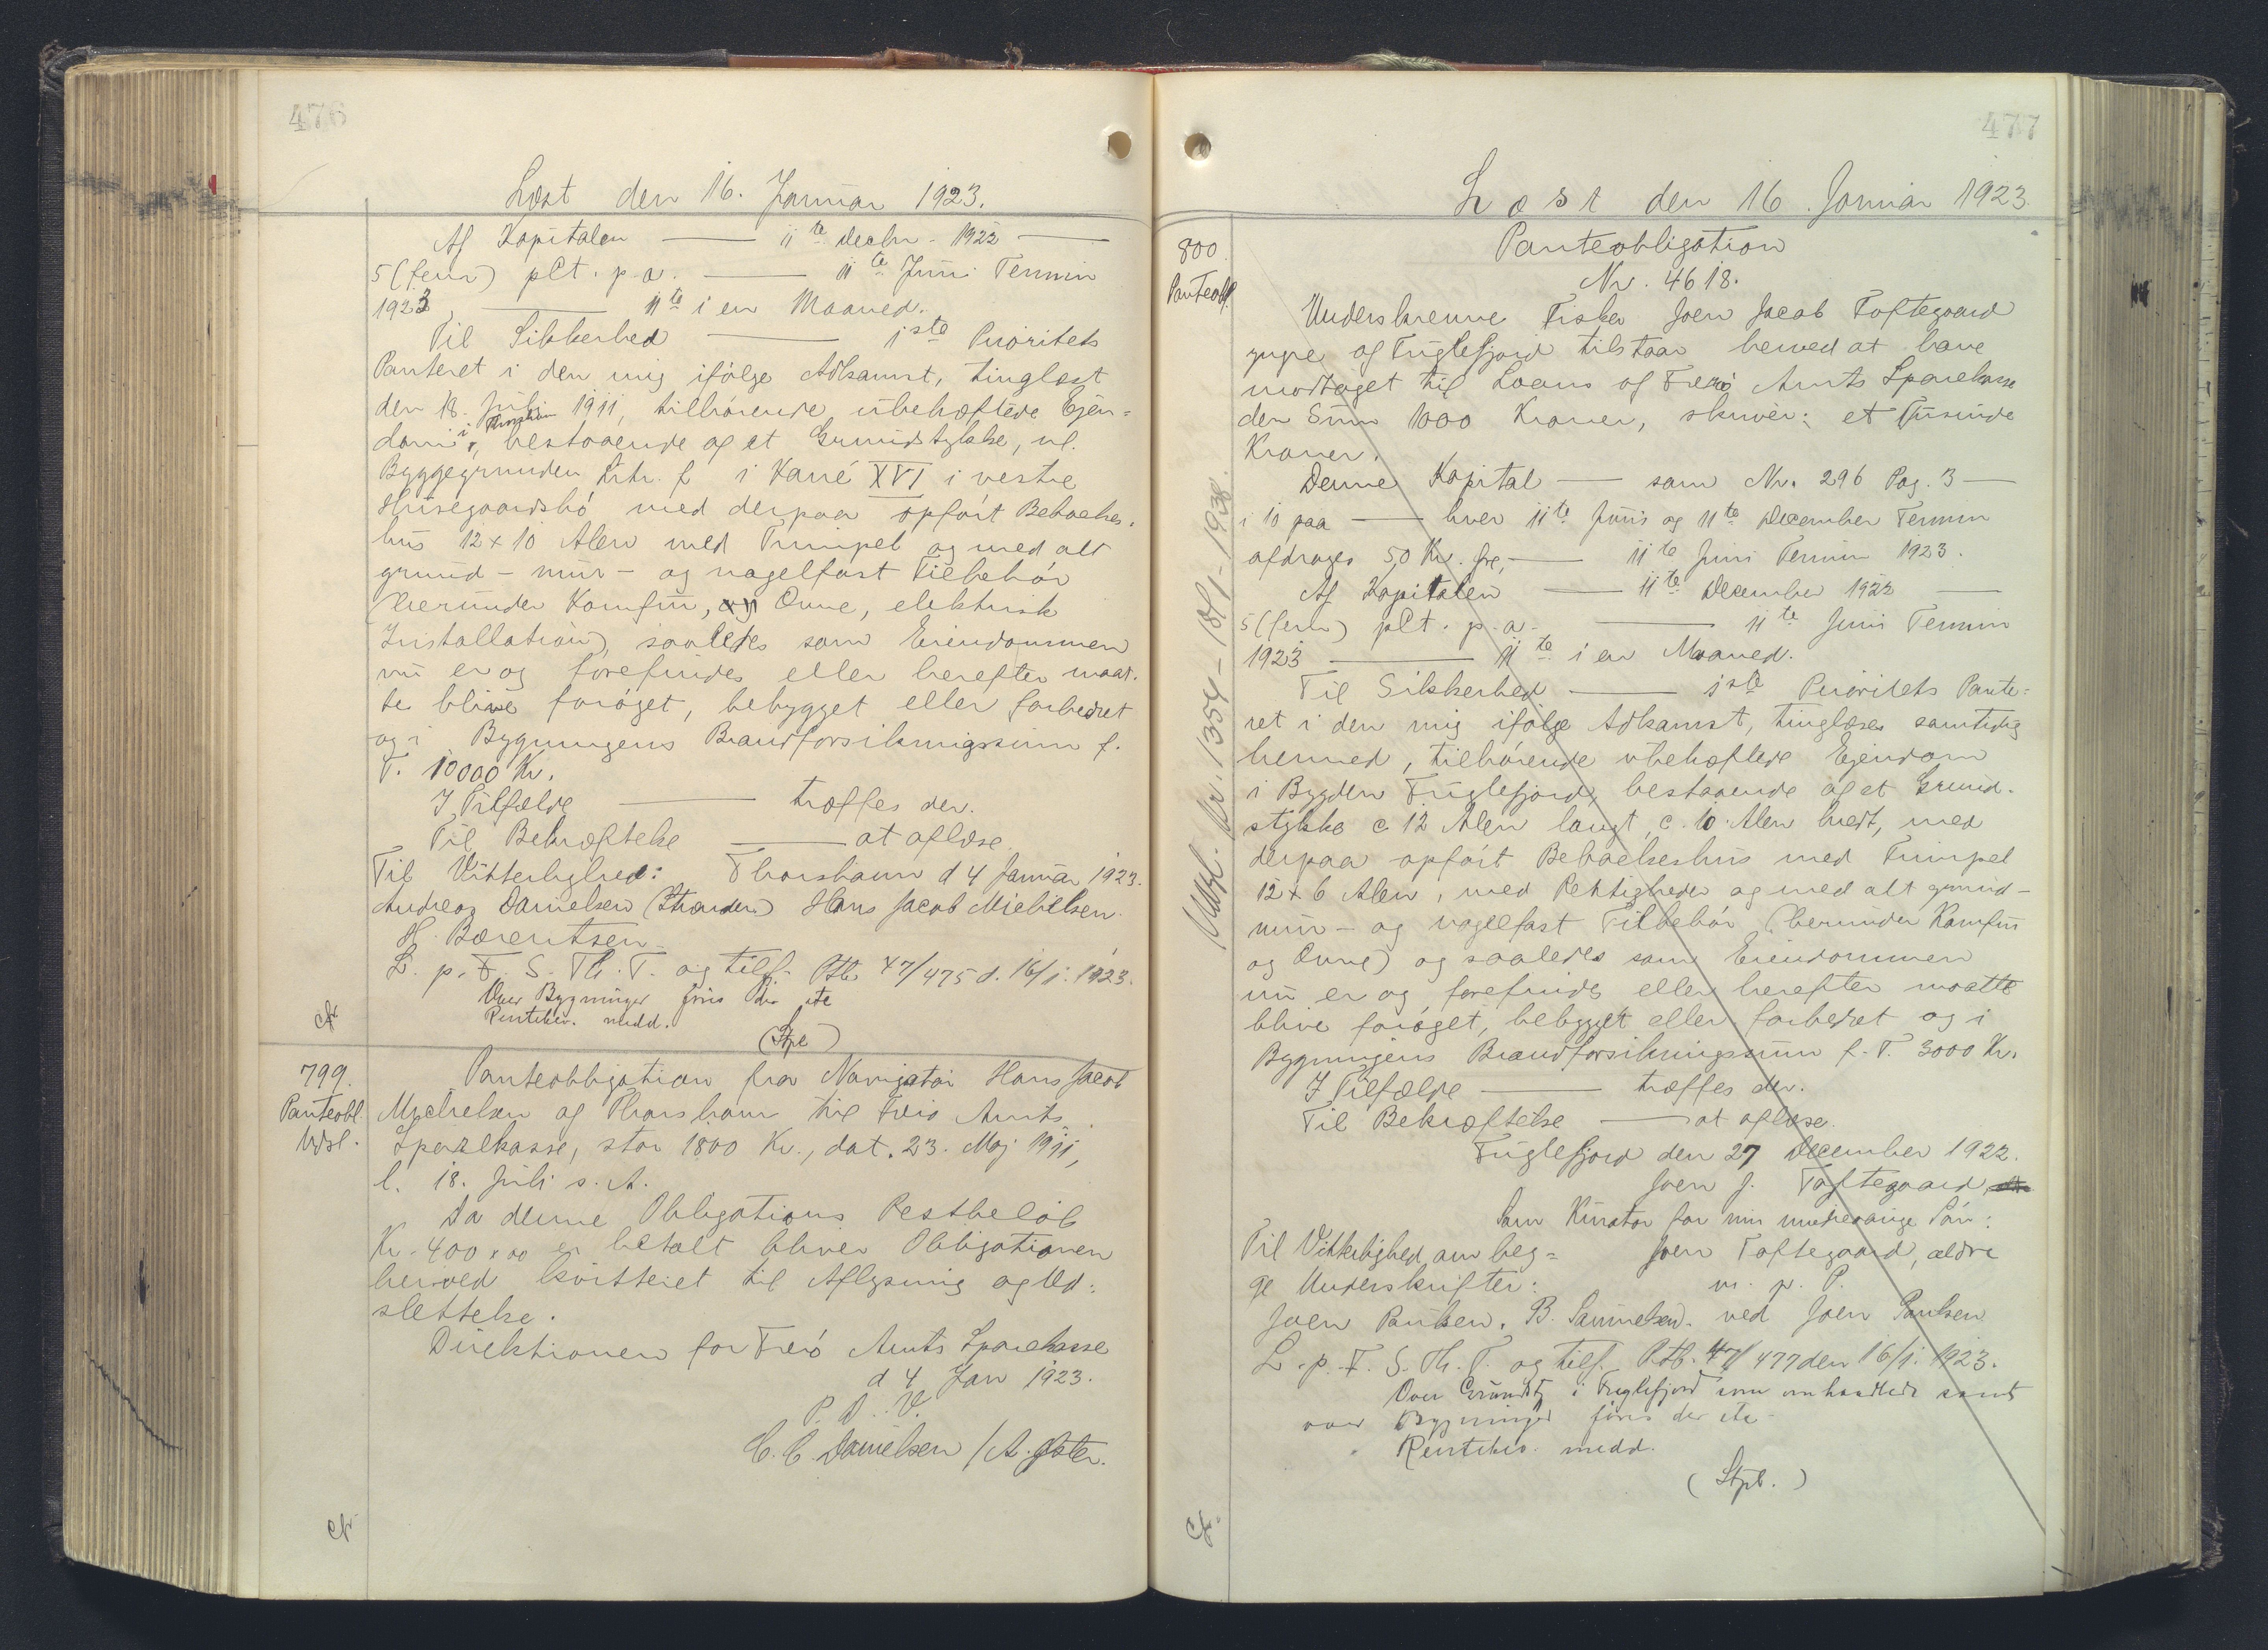 476
Læst den 16. Januar 1923.
Af Kapitalen — 11te Decbr. 1922 —
5 (fem) pCt. p. a. — 11te Juni Termin
1923 — 11te i en Maaned.
Til Sikkerhed — 1ste Prioritets
Panteret i den mig ifölge Adkomst, tinglæst
den 18. Juli 1911, tilhörende übehæftede Ejen=
dom i Thorshavn, bestaaende af et Grundstykke, nl.
Byggegrunden Litr. f i Karré XVI i vestre
Husegaardsbö med derpaa opført Beboelses-
hus 12 x 10 Alen med Trumpel og med alt
grund- mur- og nagelfast Tilbehör
(herunder Komfur, Ovne, elektrisk
Installation), saaledes som Eiendommen
nu er og forefindes eller herefter maat-
te blive foröget, bebygget eller forbedret
og i Bygningens Brandforsikringssum f.
T. 10000 Kr.
I Tilfælde — træffes der.
Til Bekræftelse — at aflæse.
Til Vitterlighed: Thorshavn d 4 Januar 1923.
Andreas Danielsen Hans Jacob Michelsen.
H. Bærentsen
L. p. F. S. Th. T. og tilf. Ptb 47/475 d. 16/1. 1923.
Over Bygninger föres der ikke
Realreg. medd.
(Stpl)
cfr
799.
Panteobl.
Udsl.
Panteobligation fra Navigatör Hans Jacob
Mychelsen af Thorshavn til Færö Amts
Sparekasse, stor 1800 Kr., dat. 23. Maj 1911,
l. 18. Juli s. A.
Da denne Obligations Restbelöb
Kr. 400 x 00 er betalt bliver Obligationen
herved kvitteret til Aflysning og Ud-
slettelse.
Direktionen for Færö Amts Sparekasse
d 4 Jan 1923.
P. D. V.
C. C. Danielsen /
cfr
477
Læst den 16. Januar 1923
800.
Panteobl.
Panteobligation
Nr. 4618.
Underskrevne Fisker Joen Jacob Toftegaard
yngre af Fuglefjord tilstaar herved at have
modtaget til Laans af Færö Amts Sparekasse
den Sum 1000 Kroner, skriver: et Tusinde
Kroner.
Denne Kapital — som Nr. 296 Pag. 3 —
i 10 paa — hver 11te Junis og 11te December Termin
afdrages 50 Kr. — 11te Juni Termin 1923.
Af Kapitalen — 11te December 1922 —
5 (fem) pCt. p. a. — 11te Juni Termin
1923 — 11te i en Maaned.
Til Sikkerhed — 1ste Prioritets Pante-
ret i den mig ifölge Adkomst, tinglæses samtidig
hermed, tilhörende ubehæftede Ejendom
i Bygden Fuglefjord, bestaaende af et Grund-
stykke c. 12 Alen langt, c. 10 Alen bredt, med
derpaa opfört Beboelseshus med Trumpel
12 x 6 Alen, med Rettigheder og med alt grund-
mur- og nagelfast Tilbehör (herunder Komfur
og Ovne) og saaledes som Eiendommen
nu er og forefindes eller herefter maatte
blive foröget, bebygget eller forbedret og i
Bygningens Brandforsikringssum f. T. 3000 Kr.
I Tilfælde — træffes der.
Til Bekræftelse — at aflæse.
Fuglefjord den 27 December 1922.
Joen J. Toftegaard
Som Kurator for min mindreaarige Sön:
Til Vitterlighed om beg= Joen Toftegaard, ældre
ge Underskrifter: m. p. P.
Joen Poulsen. B. Samuelsen. ved Joen Poulsen
L. p. F. S. Th. T. og tilf. Ptb. 47/477 den 16/1. 1923.
Over Grundst i Fuglefjord som omhandlede samt
over Bygninger föres der ikke
Realreg. medd.
(Stpl.)
cfr.
Udsl. Nr. 1354 - 18/1-1938.